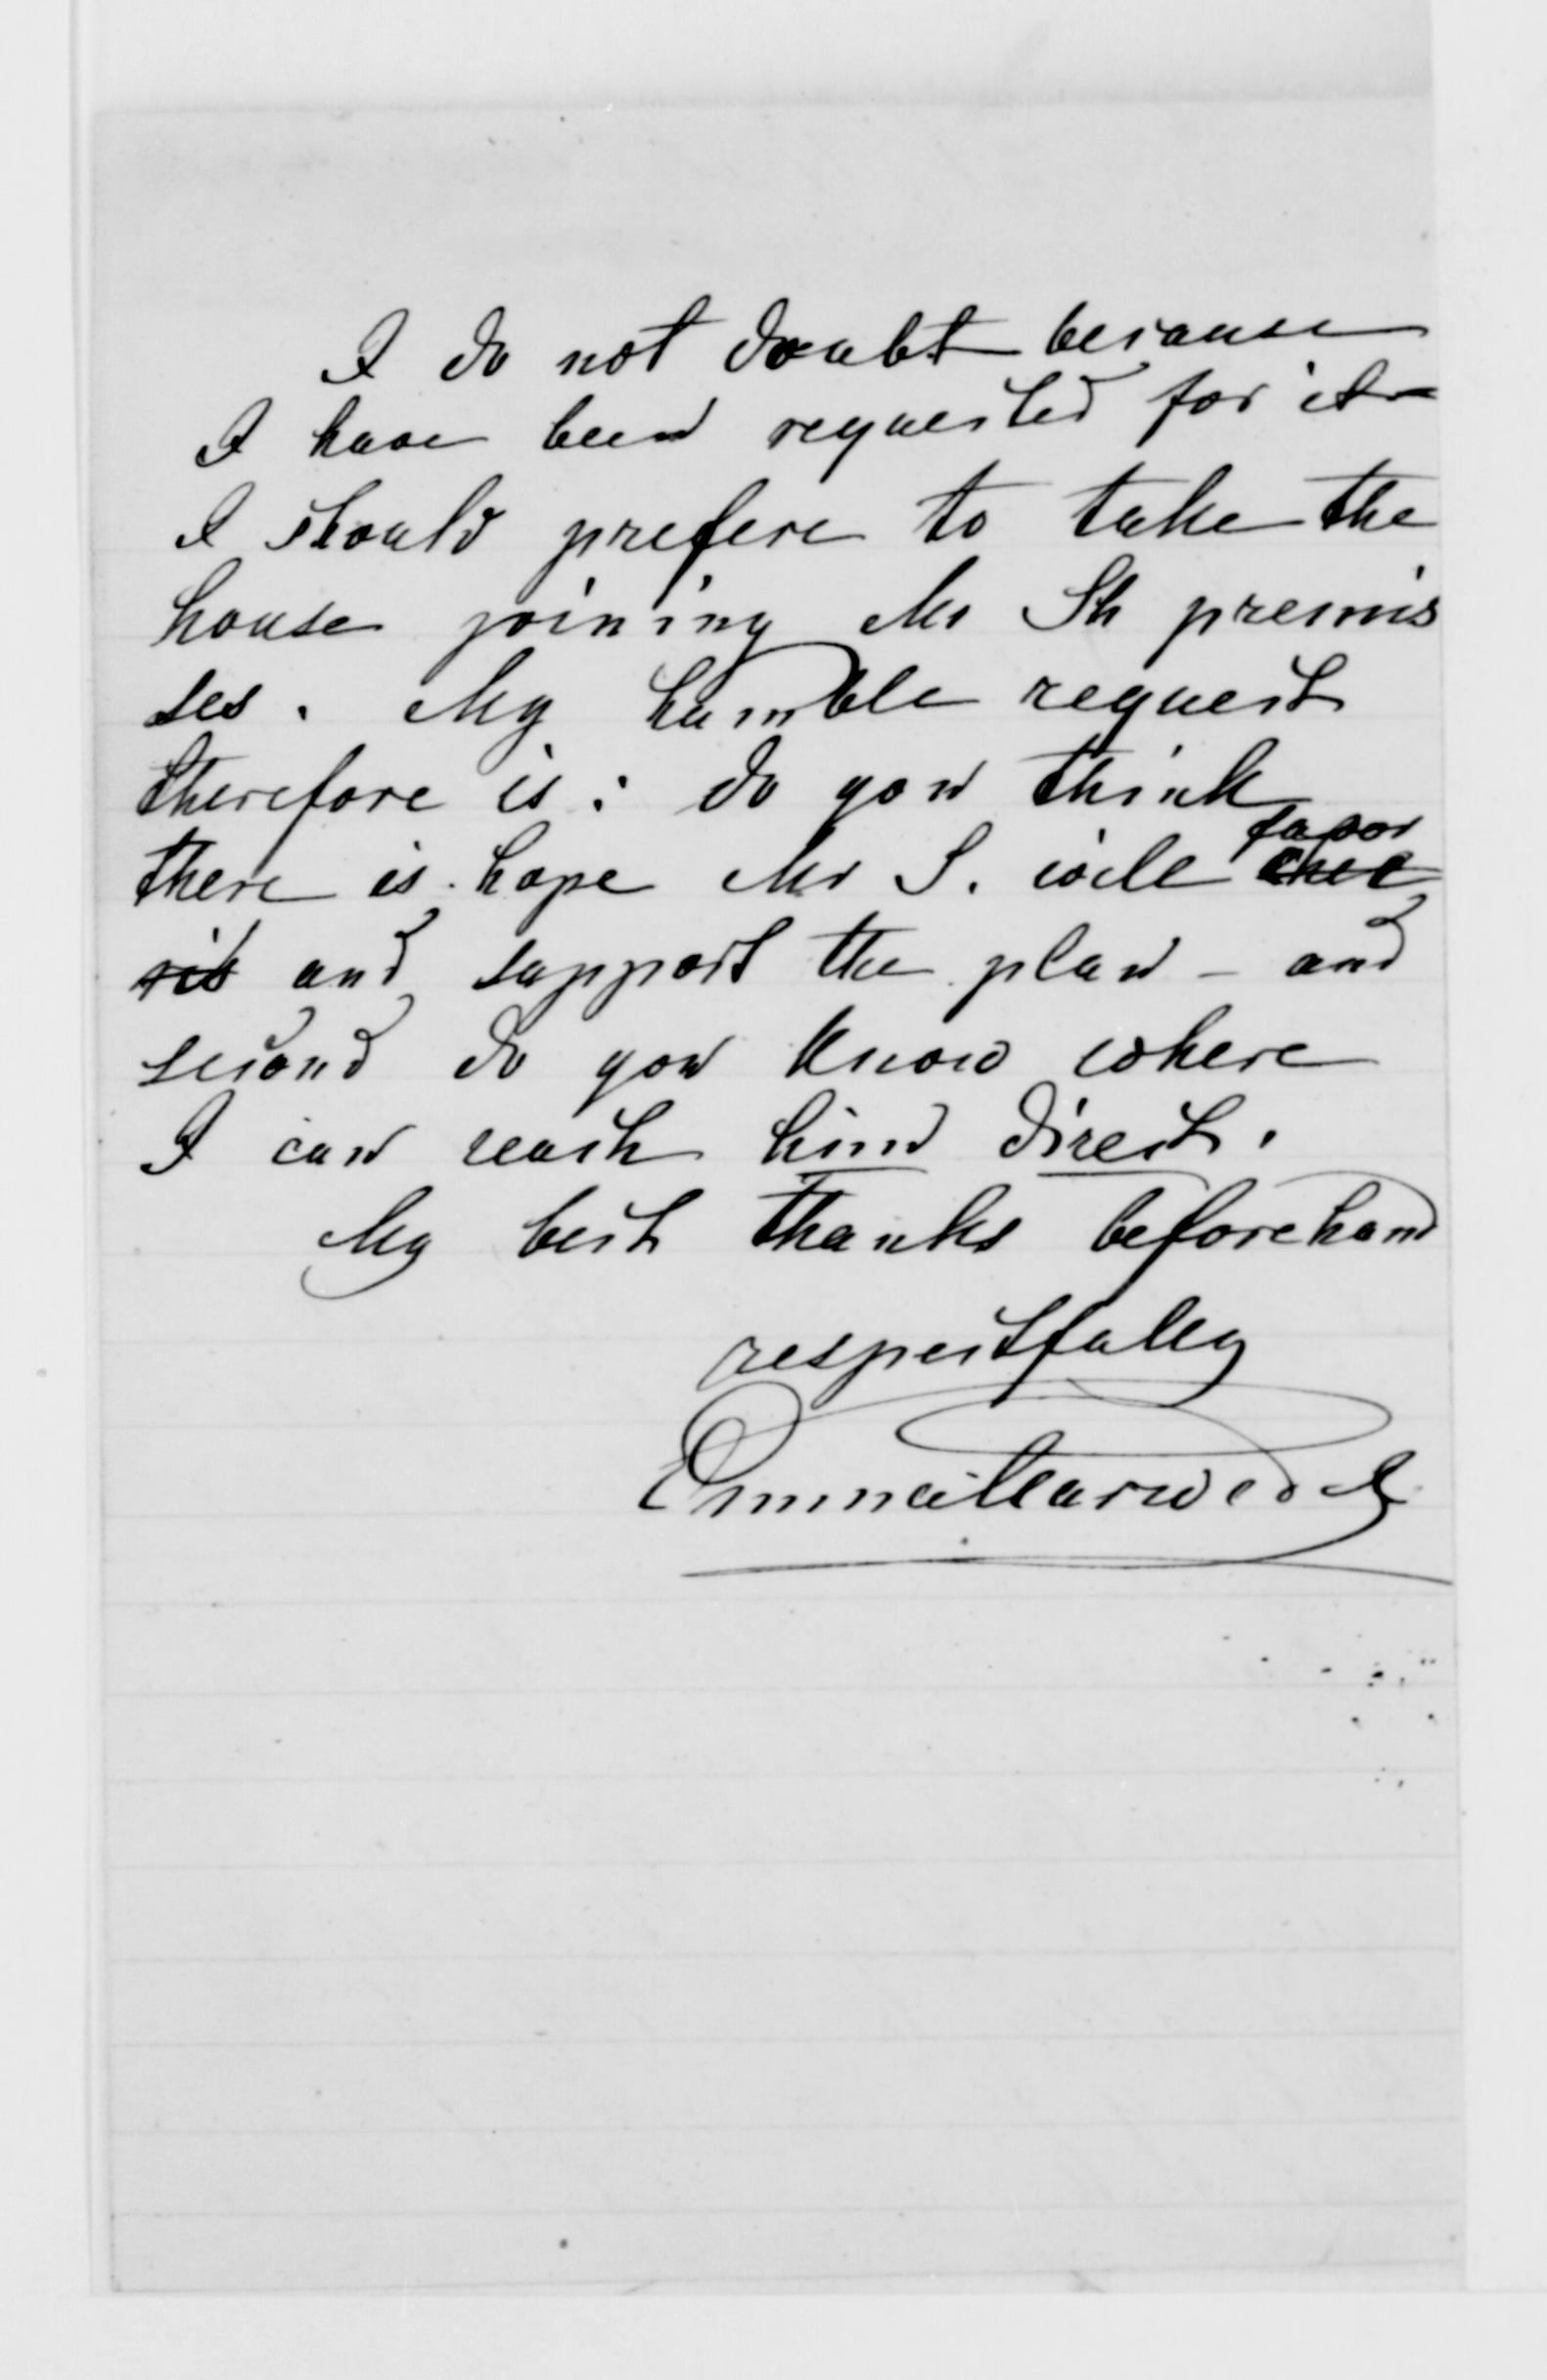 I do not doubt because
I have been requested for it
I should prefere to take the
house joining Mr Sh premis
ses. My humble request
therefore is: do you think
there is hope Mr S. will favor
and support the plan - and
second do you know where
I can reach him direct.
My best thanks beforehand
respectfully
Emma Marwedel